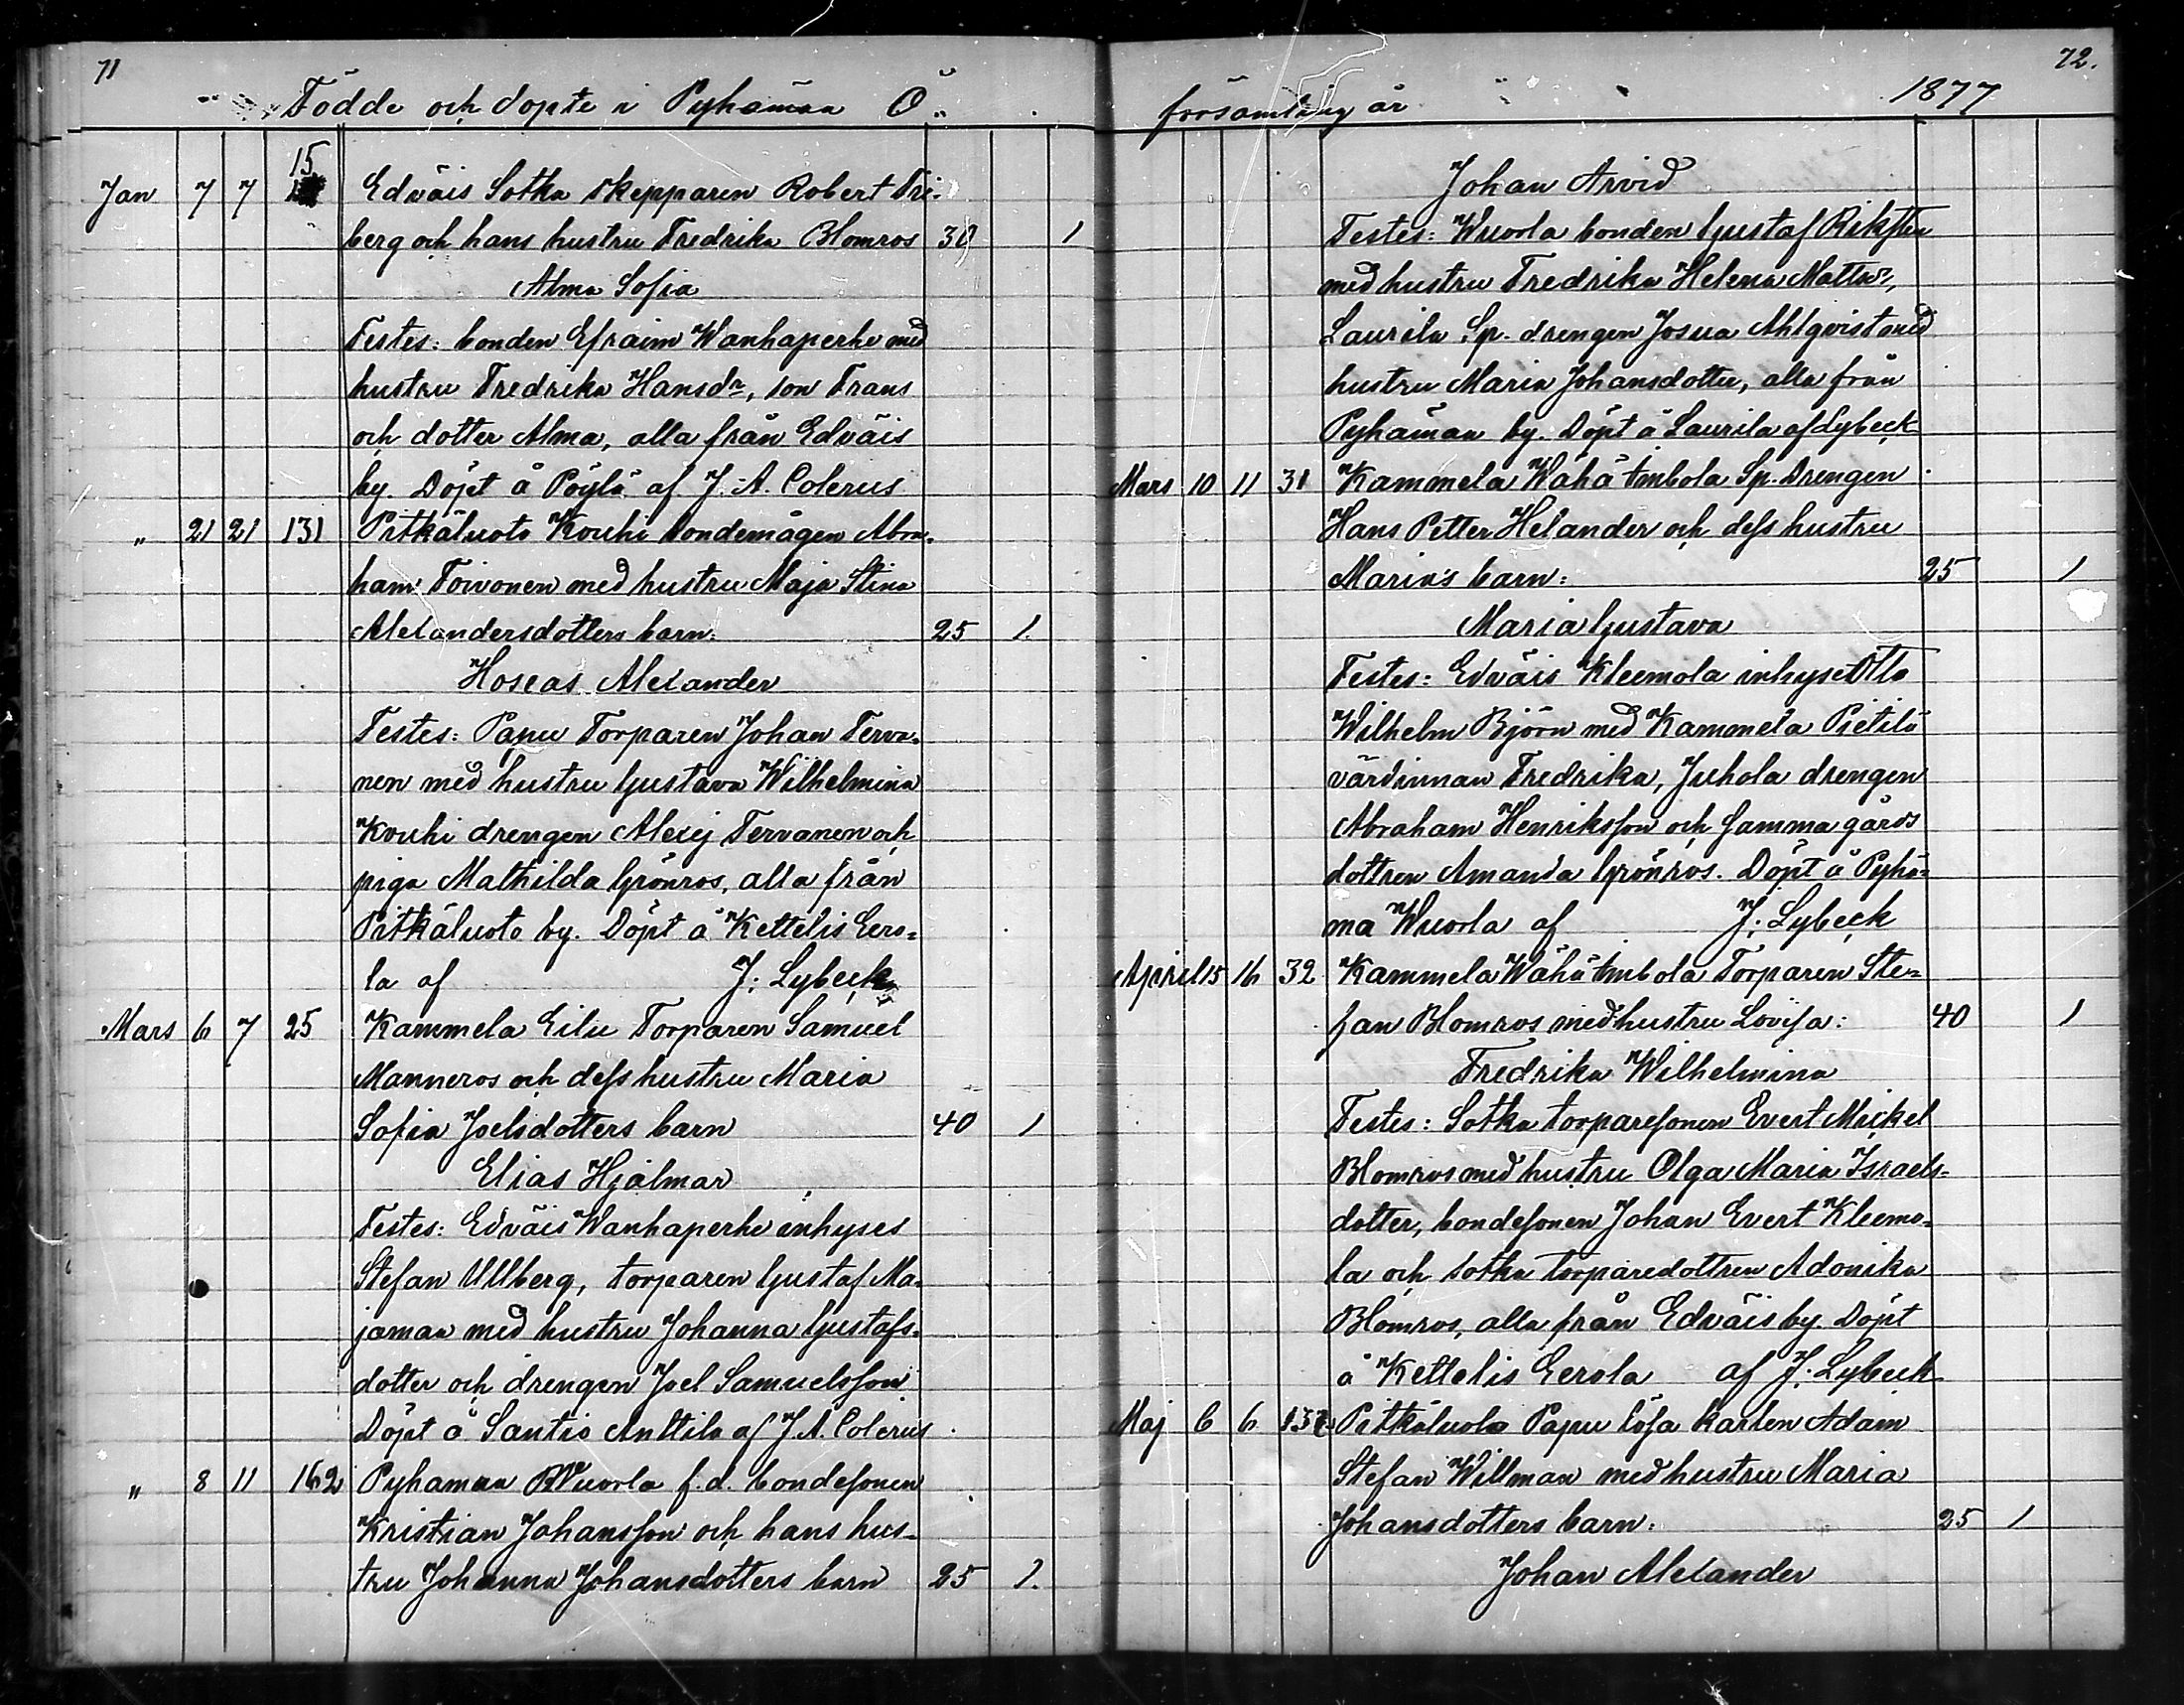 71
Födde och döpte i Pyhämaa Ö.
Jan 7 7 15 Edväis Sotka skepparen Robert Fri-
berg och hans hustru Fredrika Blomros 30 1
Alma Sofia
Testes: bonden Efraim Wanhaperhe med
hustru Fredrika Hansdr, son Frans
och dotter Alma, alla från Edväis
by. Döpt å Pöylö af J. A. Colerus
" 21 21 131 Pitkäluoto Kouhi bondemågen Abra-
ham Toivonen med hustru Maja Stina
Alexandersdotters barn: 25 1.
Hoseas Alexander
Testes: Papu Torparen Johan Terva-
nen med hustru Gustava Wilhelmina
Kouhi drengen Alexej Tervanen och
piga Mathilda Grönros, alla från
Pitkäluoto by. Döpt å Kettelis Eero-
la af J: Lybeck
Mars 6 7 25 Kammela Eilu Torparen Samuel
Manneros och dess hustru Maria
Sofia Joelsdotters barn 40 1
Elias Hjalmar
Testes: Edväis Wanhaperhe inhyses
Stefan Ullberg, torparen Gustaf Ma-
jaman med hustru Johanna Gustafs-
dotter och drengen Joel Samuelsson
Döpt å Santio Anttila af J. A. Colerus
" 8 11 162 Pyhämaa Wuorla f.d. bondesonen
Kristian Johansson och hans hus-
tru Johanna Johansdotters barn 25 1.
72.
församling år 1877
Johan Arvid
Testes: Wuorla bonden Gustaf
med hustru Fredrika Helena Mattsdr,
Laurila Sp. drengen Josua Ahlqvist med
hustru Maria Johansdotter, alla från
Pyhämaa by. Döpt å Laurila af Lybeck
Mars 10 11 31 Kammela Wähä Imbola Sp. Drengen
Hans Petter Helander och dess hustru
Maria's barn: 25 1
Maria Gustava
Testes: Edväis Kleemola inhyses Otto
Wilhelm Björn med Kammela Pietilä
värdinnan Fredrika, Juhola drengen
Abraham Henriksson och samma gårds
dottren Amanda Grönros. Döpt å Pyhä-
maa Wuorla af J: Lybeck
April 15 16 32 Kammela Wähä Imbola Torparen Ste-
fan Blomros med hustru Lovisa: 40 1
Fredrika Wilhelmina
Testes: Sotka torparesonen Evert Mickel
Blomros med hustru Olga Maria Israels-
dotter, bondesonen Johan Evert Kleemo-
la och Sotka torparedottren Adonika
Blomros, alla från Edväis by. Döpt
å Kettelis Eerola af J. Lybeck
Maj 6 6 Pitkäluoto Papu lösa karlen Adam
Stefan Willman med hustru Maria
Johansdotters barn: 25 1
Johan Alexander